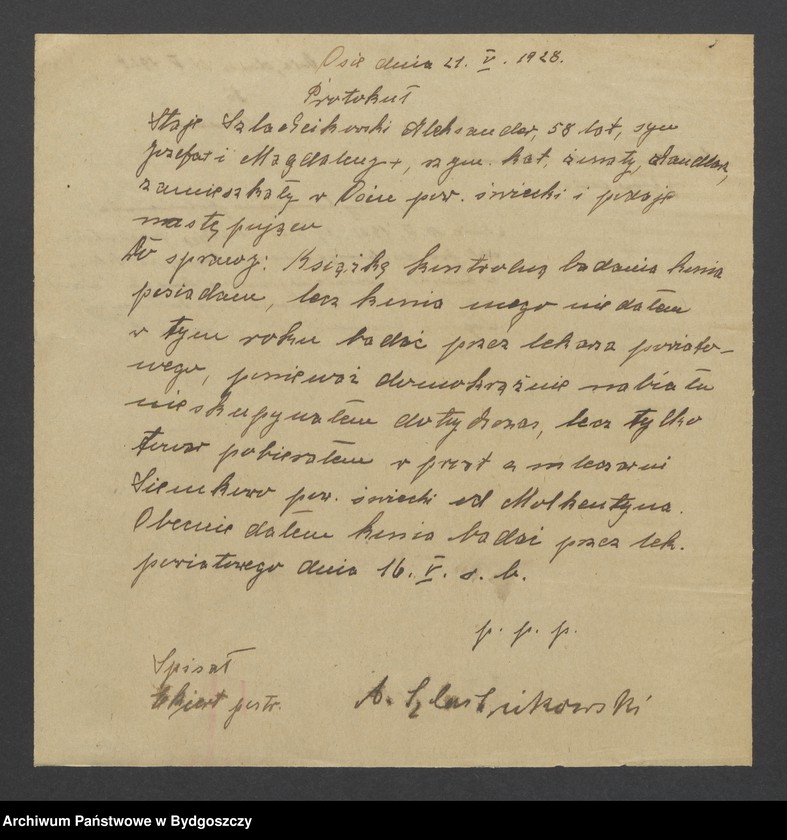 Osie dnia 21. V. 1928.
Protokuł
Staje Aleksander, 58 lat, syn
Józefa + i Magdaleny +, rzym. kat, żonaty, handlarz,
zamieszkały w Osiu pow. świecki i podaje
następująco
Do sprawy: Książkę kontrolną badania konia
posiadam, lecz konia mego nie dałem
w tym roku badać przez lekarza powiato-
wego, ponieważ domokrążnie nabiału
nieskupywałem dotychczas, lecz tylko
towar pobierałem w prost z mleczarni
Siemkowo pow. świecki od Molkentyna.
Obecnie dałem konia badać przez lek.
powiatowego dnia 16. V. r. b.
p. p. p.
Spisał
post.
A.
Archiwum Państwowe w Bydgoszczy